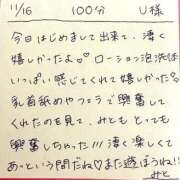 11/16 100分 U様
今日はじめまして出来て、凄く
嬉しかったよ♡ ローション泡洗体
いっぱい感じてくれて嬉しかった
乳首舐めやフェラで興奮して
くれたのを見て、みともとっても
興奮しちゃった!!! 凄く楽しくて
あっという間だね♡また遊ぼうね!!
みと